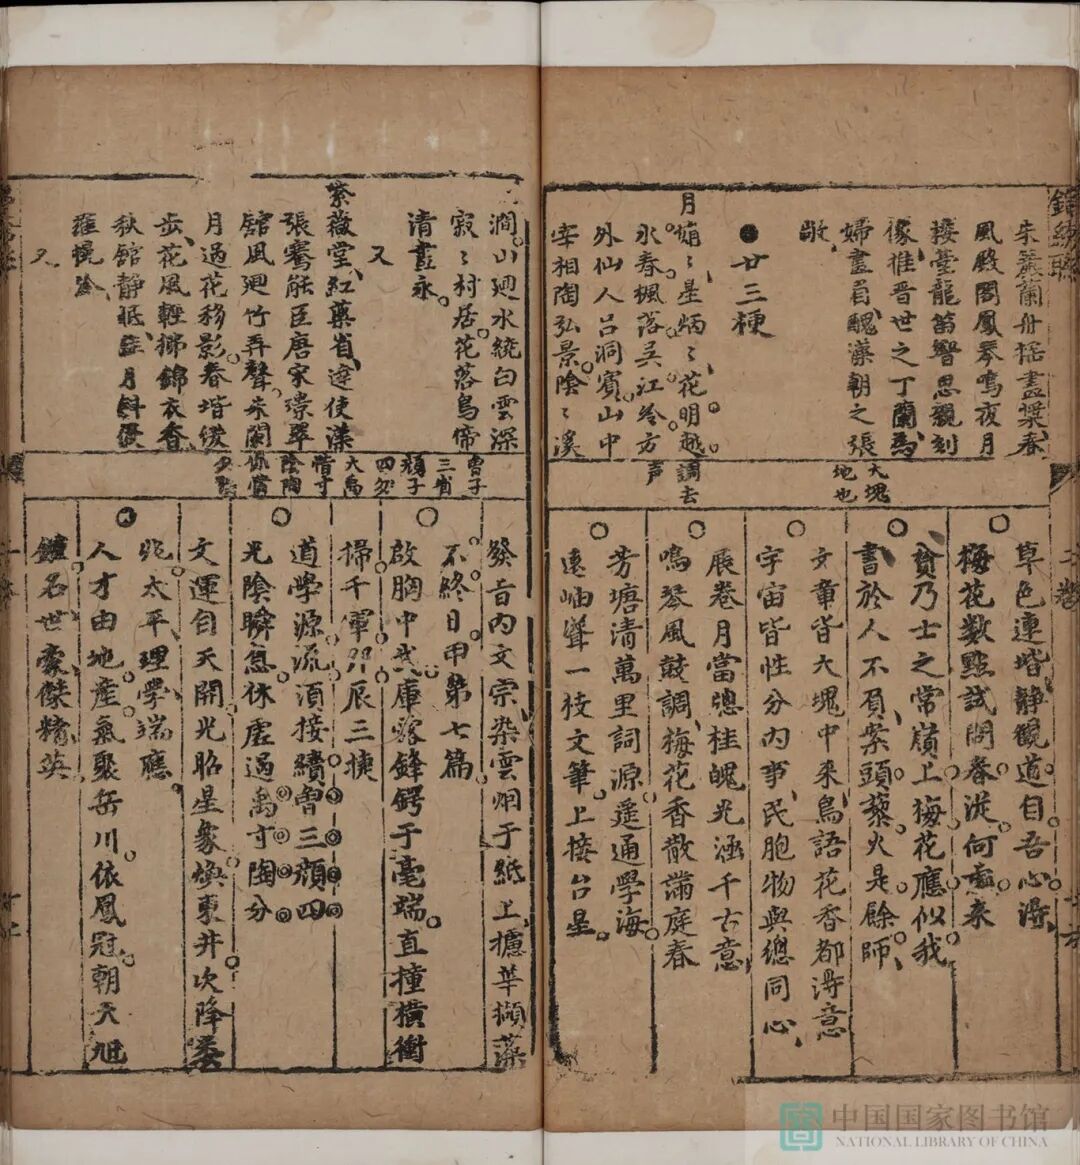 朱簾蘭舟搖盡槳春
風殿閣鳳琴鳴夜月
樓臺龍笛響思親刻
像推晋世之丁蘭為
婦畫眉醜漢朝之張
敞
廿三梗
月娟〻星炳〻花明越
水春楓落吳江冷方
外仙人吕洞賓山中
宰相陶弘景陰〻溪
大塊
地也
調去
声
草色連堦静觀道自吾心淂
梅花数點試問春從何處来
貧乃士之常嶺上梅花應似我
書於人不負案頭藜火是餘師
文章皆大塊中来鳥語花香都淂意
宇宙皆性分内事民胞物與總同心
展卷月當窓桂魄光涵千古意
鳴琴風鼓調梅花香散滿庭春
芳塘清萬里詞源遥通學海
遠岫聳一枝文筆上接台星
澗山廻水繞白雲深
寂〻村居花落鳥啼
清晝永
又
紫薇堂紅藥省達使漢
張騫能臣唐宋璟翠
舘風廻竹弄聲朱闌
月過花移影春堦緩
步花風輕拂錦衣香
秋舘静眠
月斜侵
羅幌冷
又
曾子
三省
顔子
四勿
大禹
惜寸
陰陶
侃惜
分陰
發音内文宗染雲烟于紙上摅華擷藻
不終日甲第七篇
啟胸中武庫露鋒鍔于毫端直撞橫衝
掃千軍卯辰三捷
道學源流須接續曾三顔四
光陰瞬息休虚過禹寸陶分
文運自天開光昭星象煥東井次降婁
兆太平理學端應
人才由地産氣聚岳川依鳳冠朝天旭
鍾名世豪傑精英
中国国家图书馆
NATIONAL LIBRARY OF CHINA